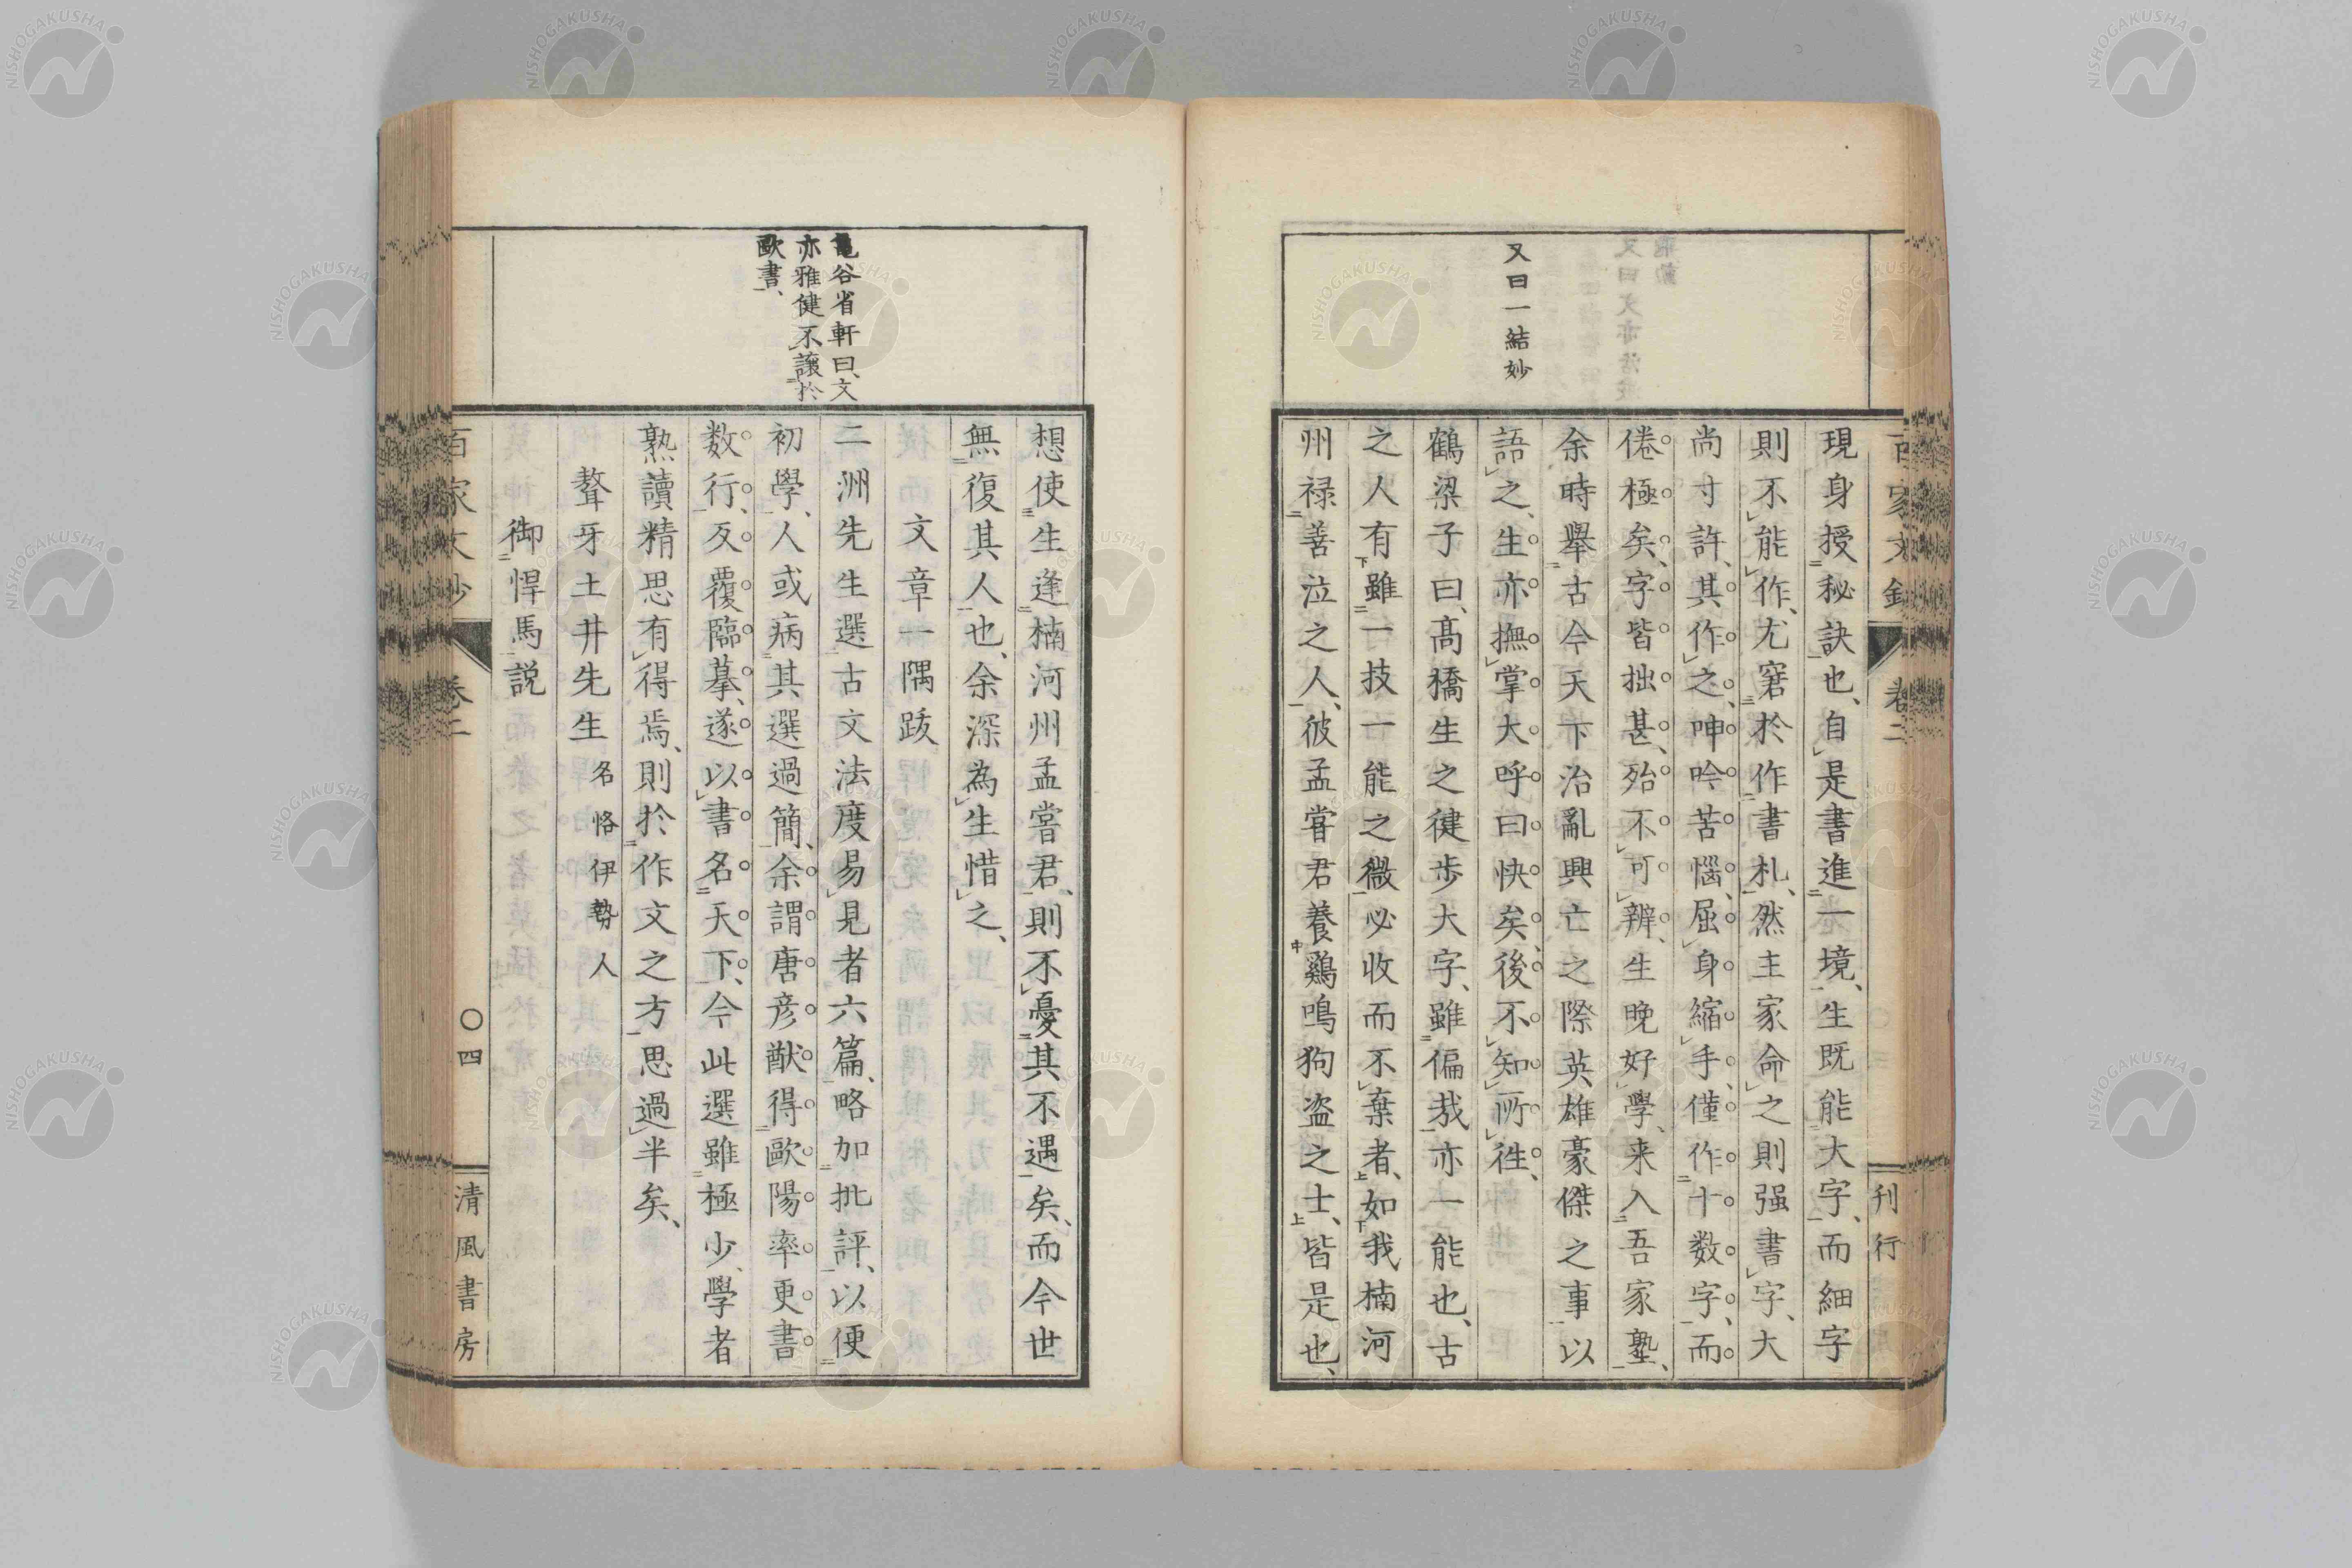 又曰一結妙
現身授秘訣也、自是書進一境、生既能大字、而細字
則不能作、尤窘於作書札、然主家命之則强書字、大
尚寸許、其作之、呻吟苦惱、屈身縮手、僅作十数字、而
倦極矣、字皆拙甚、殆不可辨、生晩好學、来入吾家塾、
余時舉古今天下治亂興亡之際英雄豪傑之事以
語之、生亦撫掌大呼曰快矣、後不知所徃、
鶴梁子曰、髙橋生之健歩大字、雖偏哉亦一能也、古
之人有雖一技一能之微必收而不棄者、如我楠河
州禄善泣之人、彼孟嘗君養鷄鳴狗盗之士、皆是也、
百家文鈔 卷二
刊行
龜谷省軒曰、文
亦雅健不讓於
歐書、
想使生逢楠河州孟嘗君、則不憂其不遇矣、而今世
無復其人也、余深為生惜之、
文章一隅跋
二洲先生選古文法度易見者六篇、略加批評、以便
初學、人或病其選過簡、余謂唐彦猷得歐陽率更書
数行、反覆臨摹、遂以書名天下、今此選雖極少、學者
熟讀精思有得焉、則於作文之方思過半矣、
聱牙土井先生 名恪伊勢人
御悍馬説
百家文鈔 卷二 〇四
清風書房
NISHOGAKUSHA